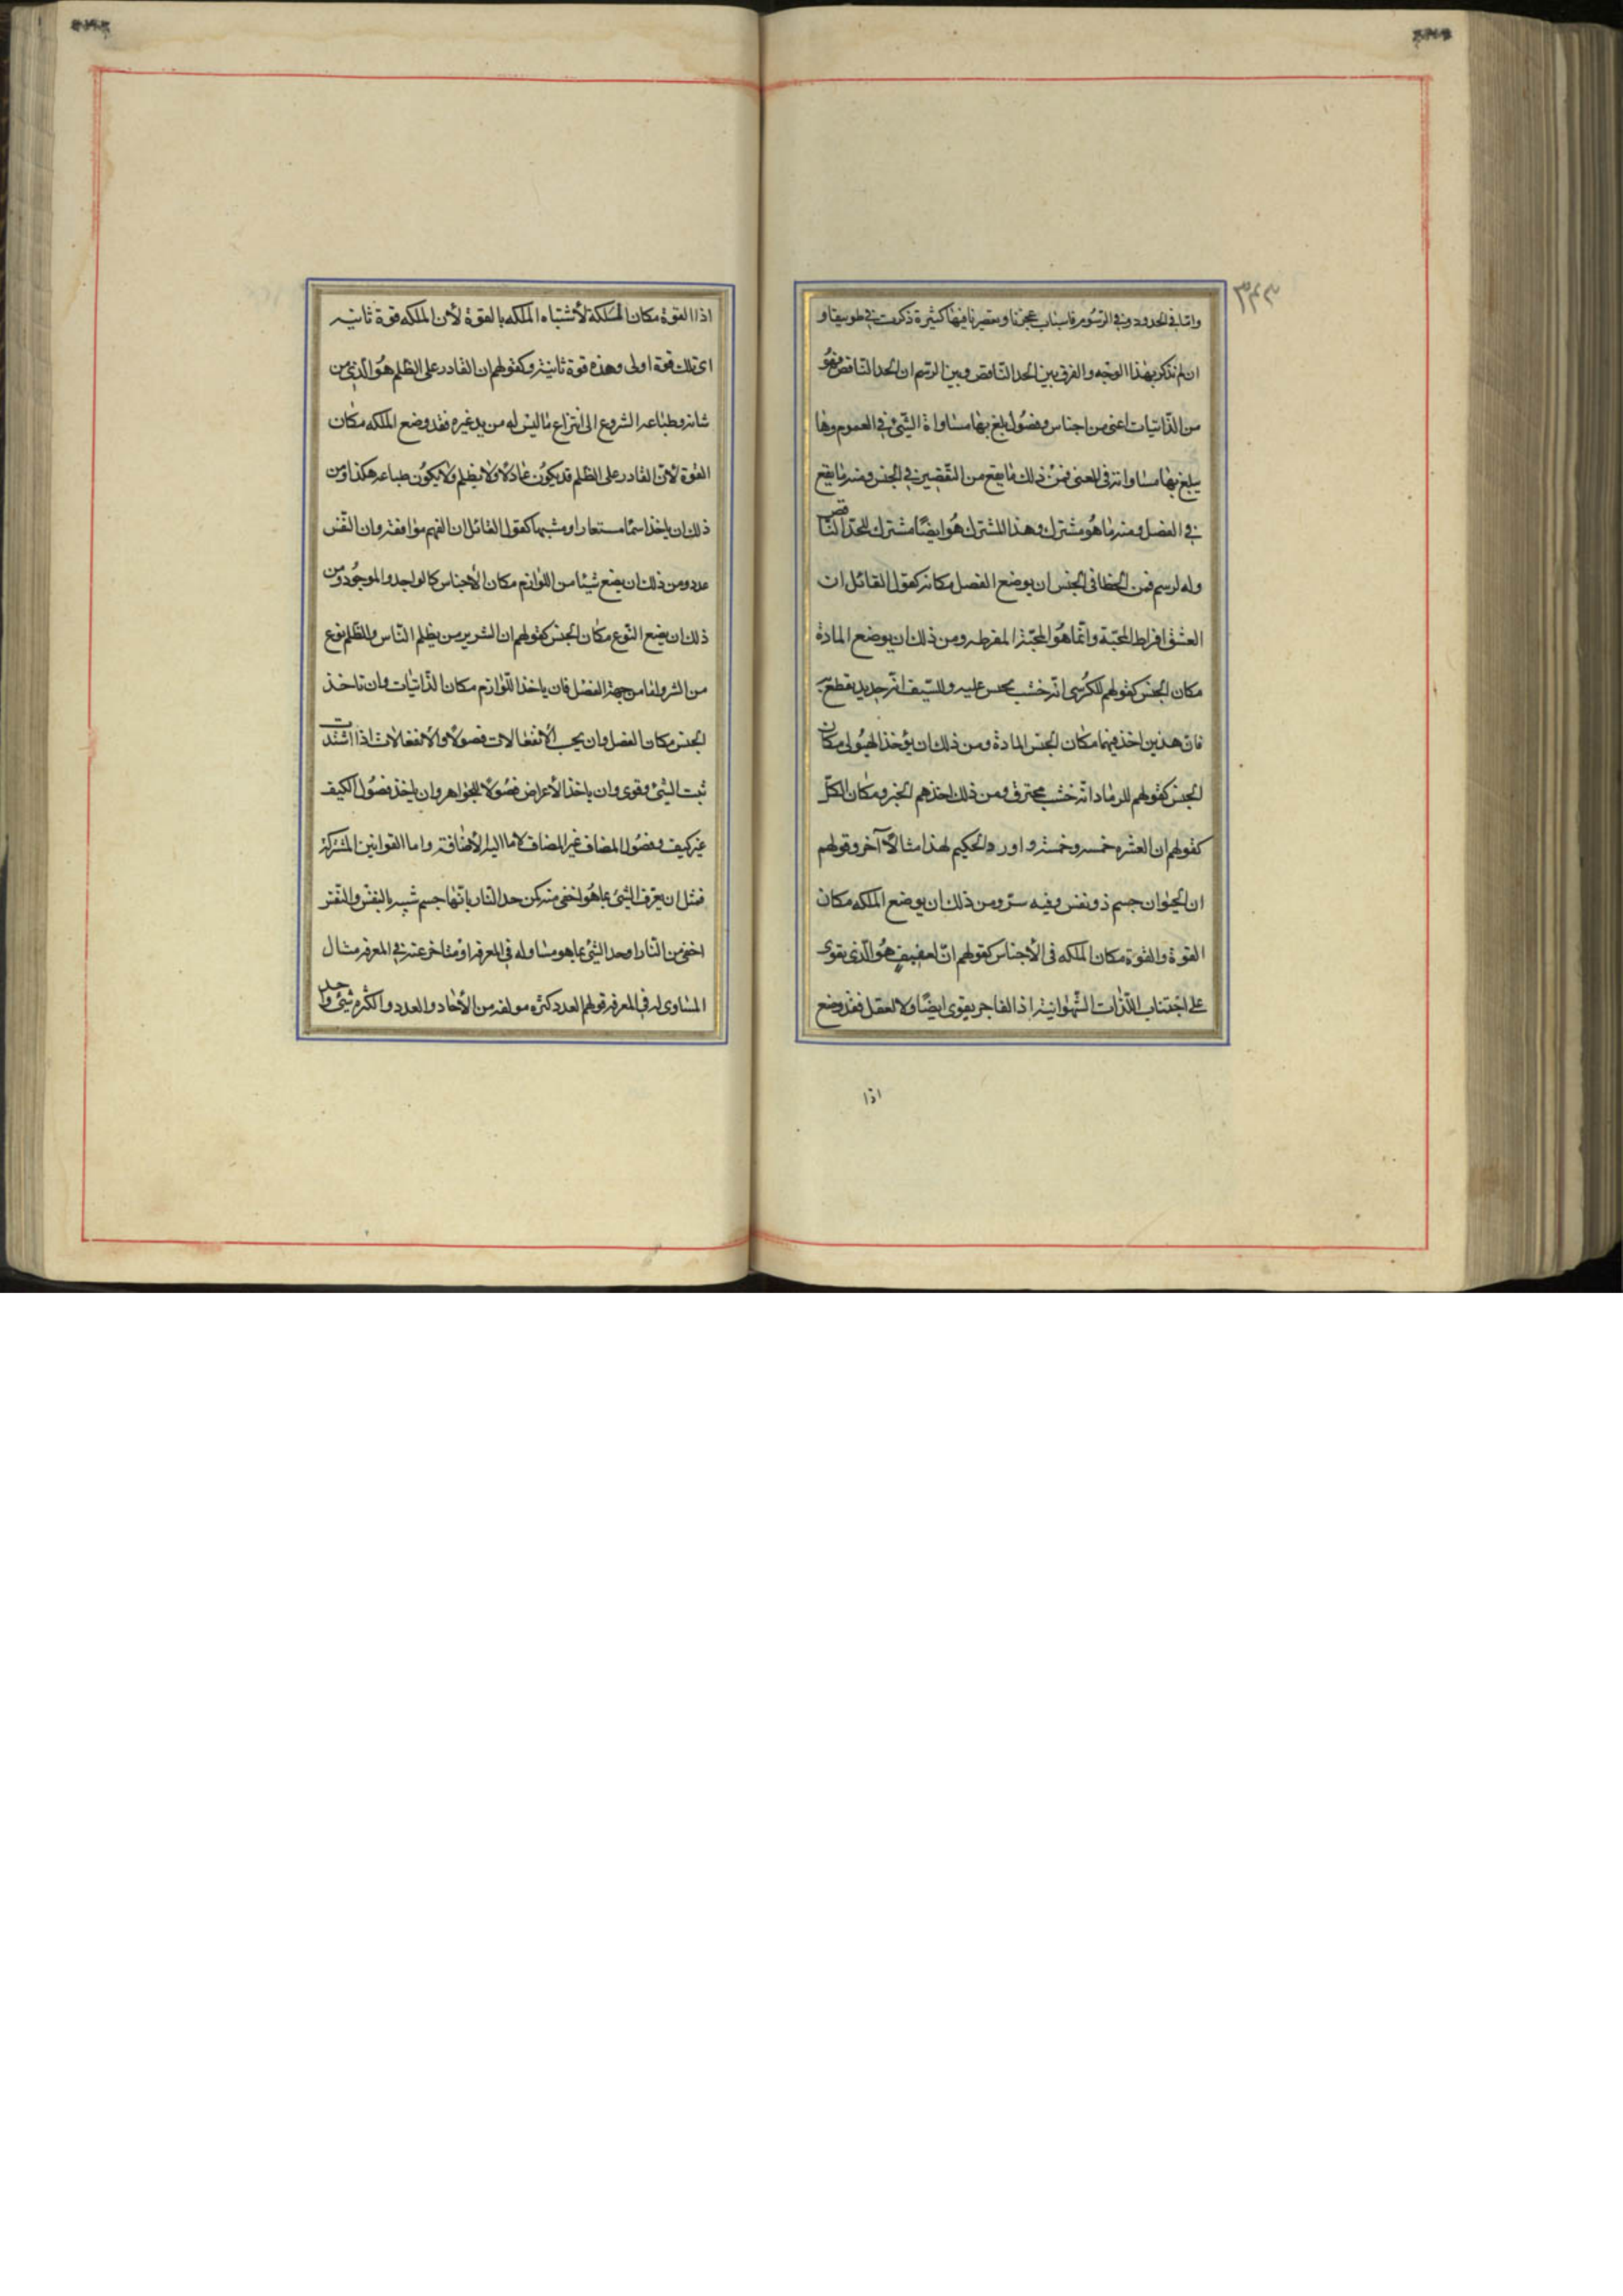 ٣٣٣
واما فى الحدود وفى الرسوم فاسباب عجزنا وتقصيرنا فيها كثيرة ذكرت فى طوبيقا و
ان لم نذكر بهذا الوجه والفرق بين الحد الناقص وبين الرسم ان الحد الناقص فهو
من الذاتيات اعنى من اجناس وفصول بلغ بها مساواة الشئ فى العموم وما
يبلغ بها مساواته فى المعنى فمن ذلك ما يقع من التقصير فى الجنس ومنه ما يقع
فى الفصل ومنه ما هو مشترك وهذا المشترك هو ايضًا مشترك للحد الناقص
وله لرسم فمن الخطا فى الجنس ان يوضع الفصل مكانه كقول القائل ان
العشق افراط المحبة وانما هو المحبة المفرطه ومن ذلك ان يوضع المادة
مكان الجنس كقولهم للكرسى انه خشب يجلس عليه وللسيف انه حديد يقطع به
فان هذين اخذ فيهما مكان الجنس المادة ومن ذلك ان يؤخذ الهيولى مكان
الجنس كقولهم للرماد انه خشب محترق ومن ذلك اخذهم الجزو مكان الكل
كقولهم ان العشره خمسه وخمسة واورد الحكيم لهذا مثالاً آخر وقولهم
ان الحيوان جسم ذو نفس وفيه سر ومن ذلك ان يوضع الملكه مكان
القوة والقوة مكان الملكه فى الأجناس كقولهم ان العفيف هو الذى يقوى
على اجتناب اللذات الشهوانية اذ الفاجر يقوى ايضًا ولا لعقل فقد وضع
اذا
اذا القوة مكان الملكة لأشتباه الملكه بالقوة لأن الملكه قوة ثانيه
اى تلك قوة اولى وهذه قوة ثانية وكقولهم ان القادر على الظلم هو الذى من
شانه وطباعه الشروع الى انتزاع ما ليس له من يد غيره فقد وضع الملكه مكان
القوة لأن القادر على الظلم قد يكون عادلا ولا يظلم ولا يكون طباعه هكذا ومن
ذلك ان ياخذ اسمًا مستعارا ومشبها كقول القائل ان الفهم موافقة وان النفس
عدد ومن ذلك ان يضع شيئا من اللوازم مكان الأجناس كالواحد والموجود ومن
ذلك ان يضع النوع مكان الجنس كقولهم ان الشرير من يظلم الناس والظلم نوع
من الشر واما من جهة الفصل فان ياخذ اللوازم مكان الذاتيات وان تاخذ
الجنس مكان الفصل وان يحسب الأنفعالات فصولاً والأنفعالات اذا اشتدت
ثبت الشئ وقوى وان ياخذ الأعراض فصولاً للجواهر وان ياخذ فصول الكيف
غير كيف وفصول المضاف غير المضاف لا ما اليه الأضافة واما القوانين المشتركة
فمثل ان يعرف الشئ بما هو اخفى منه كمن حد النار بانها جسم شبيه بالنفس والنفس
اخفى من النار او حد الشئ بما هو مساو له فى المعرفه او متاخر عنه فى المعرفه مثال
المساوى له فى المعرفه قولهم العدد كثره مولفه من الأحاد والعدد والكثره شئ واحد